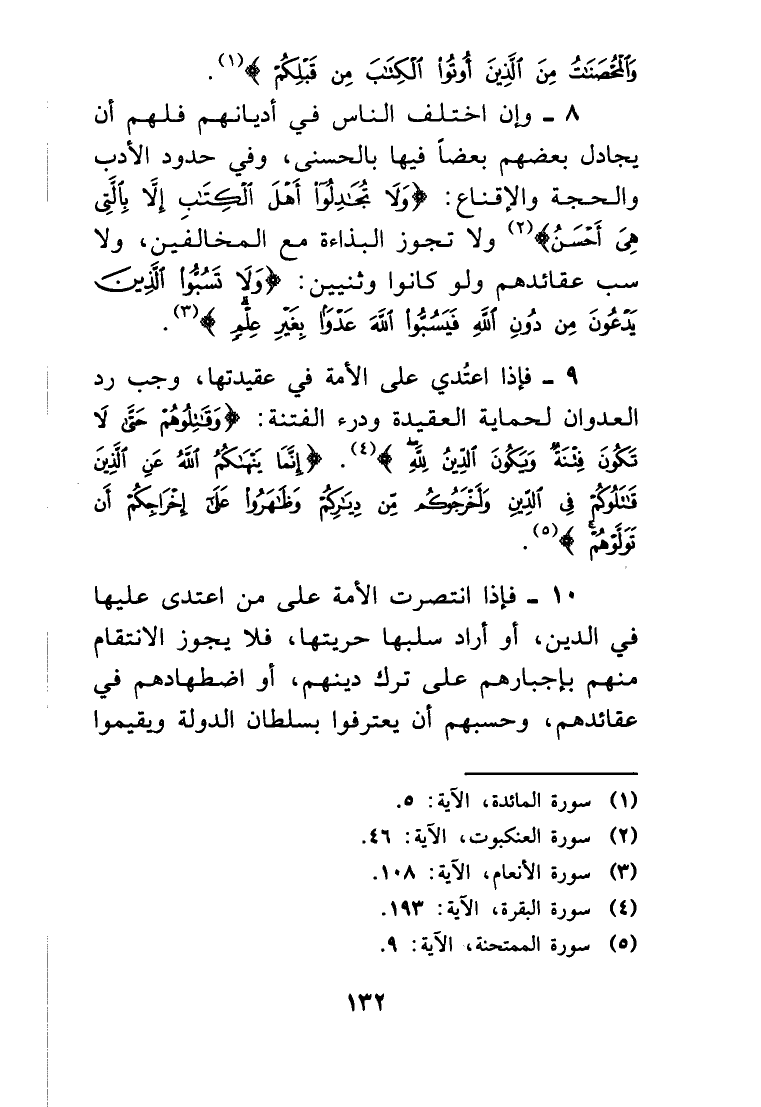 وَٱلْمُحْصَنَٰتُ مِنَ ٱلَّذِينَ أُوتُوا۟ ٱلْكِتَٰبَ مِن قَبْلِكُمْ ﴾(١).
٨ ـ وإن اختلف الناس في أديانهم فلهم أن
يجادل بعضهم بعضاً فيها بالحسنى، وفي حدود الأدب
والحجة والإقناع: ﴿وَلَا تُجَٰدِلُوٓا۟ أَهْلَ ٱلْكِتَٰبِ إِلَّا بِٱلَّتِى
هِىَ أَحْسَنُ﴾(٢) ولا تجوز البذاءة مع المخالفين، ولا
سب عقائدهم ولو كانوا وثنيين: ﴿وَلَا تَسُبُّوا۟ ٱلَّذِينَ
يَدْعُونَ مِن دُونِ ٱللَّهِ فَيَسُبُّوا۟ ٱللَّهَ عَدْوًۢا بِغَيْرِ عِلْمٍۗ ﴾(٣).
٩ ـ فإذا اعتُدي على الأمة في عقيدتها، وجب رد
العدوان لحماية العقيدة ودرء الفتنة: ﴿وَقَٰتِلُوهُمْ حَتَّىٰ لَا
تَكُونَ فِتْنَةٌ وَيَكُونَ ٱلدِّينُ لِلَّهِۖ ﴾(٤). ﴿إِنَّمَا يَنْهَىٰكُمُ ٱللَّهُ عَنِ ٱلَّذِينَ
قَٰتَلُوكُمْ فِى ٱلدِّينِ وَأَخْرَجُوكُم مِّن دِيَٰرِكُمْ وَظَٰهَرُوا۟ عَلَىٰٓ إِخْرَاجِكُمْ أَن
تَوَلَّوْهُمْۚ ﴾(٥).
١٠ ـ فإذا انتصرت الأمة على من اعتدى عليها
في الدين، أو أراد سلبها حريتها، فلا يجوز الانتقام
منهم بإجبارهم على ترك دينهم، أو اضطهادهم في
عقائدهم، وحسبهم أن يعترفوا بسلطان الدولة ويقيموا
(١) سورة المائدة، الآية: ٥.
(٢) سورة العنكبوت، الآية: ٤٦.
(٣) سورة الأنعام، الآية: ١٠٨.
(٤) سورة البقرة، الآية: ١٩٣.
(٥) سورة الممتحنة، الآية: ٩.
١٣٢